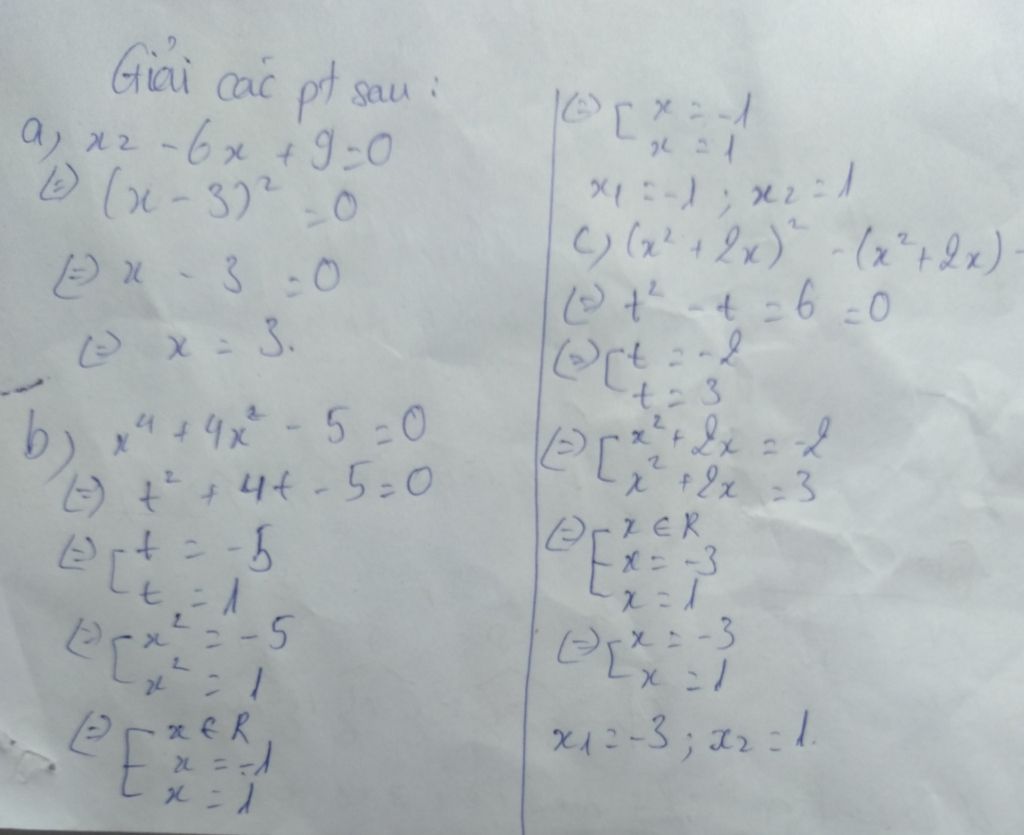 Giải các pt sau:
a, x2 - 6x + 9 = 0
(=) (x - 3)² = 0
(=) x - 3 = 0
(=) x = 3.
b) x⁴ + 4x² - 5 = 0
(=) t² + 4t - 5 = 0
(=) [ t = -5
t = 1
(=) [ x² = -5
x² = 1
(=) [ x ∈ R
x = -1
x = 1
(=) [ x = -1
x = 1
x1 = -1 ; x2 = 1
c, (x² + 2x)² - (x² + 2x) -
(=) t² - t = 6 = 0
(=) [ t = -2
t = 3
(=) [ x² + 2x = -2
x² + 2x = 3
(=) [ x ∈ R
x = -3
x = 1
(=) [ x = -3
x = 1
x1 = -3 ; x2 = 1.